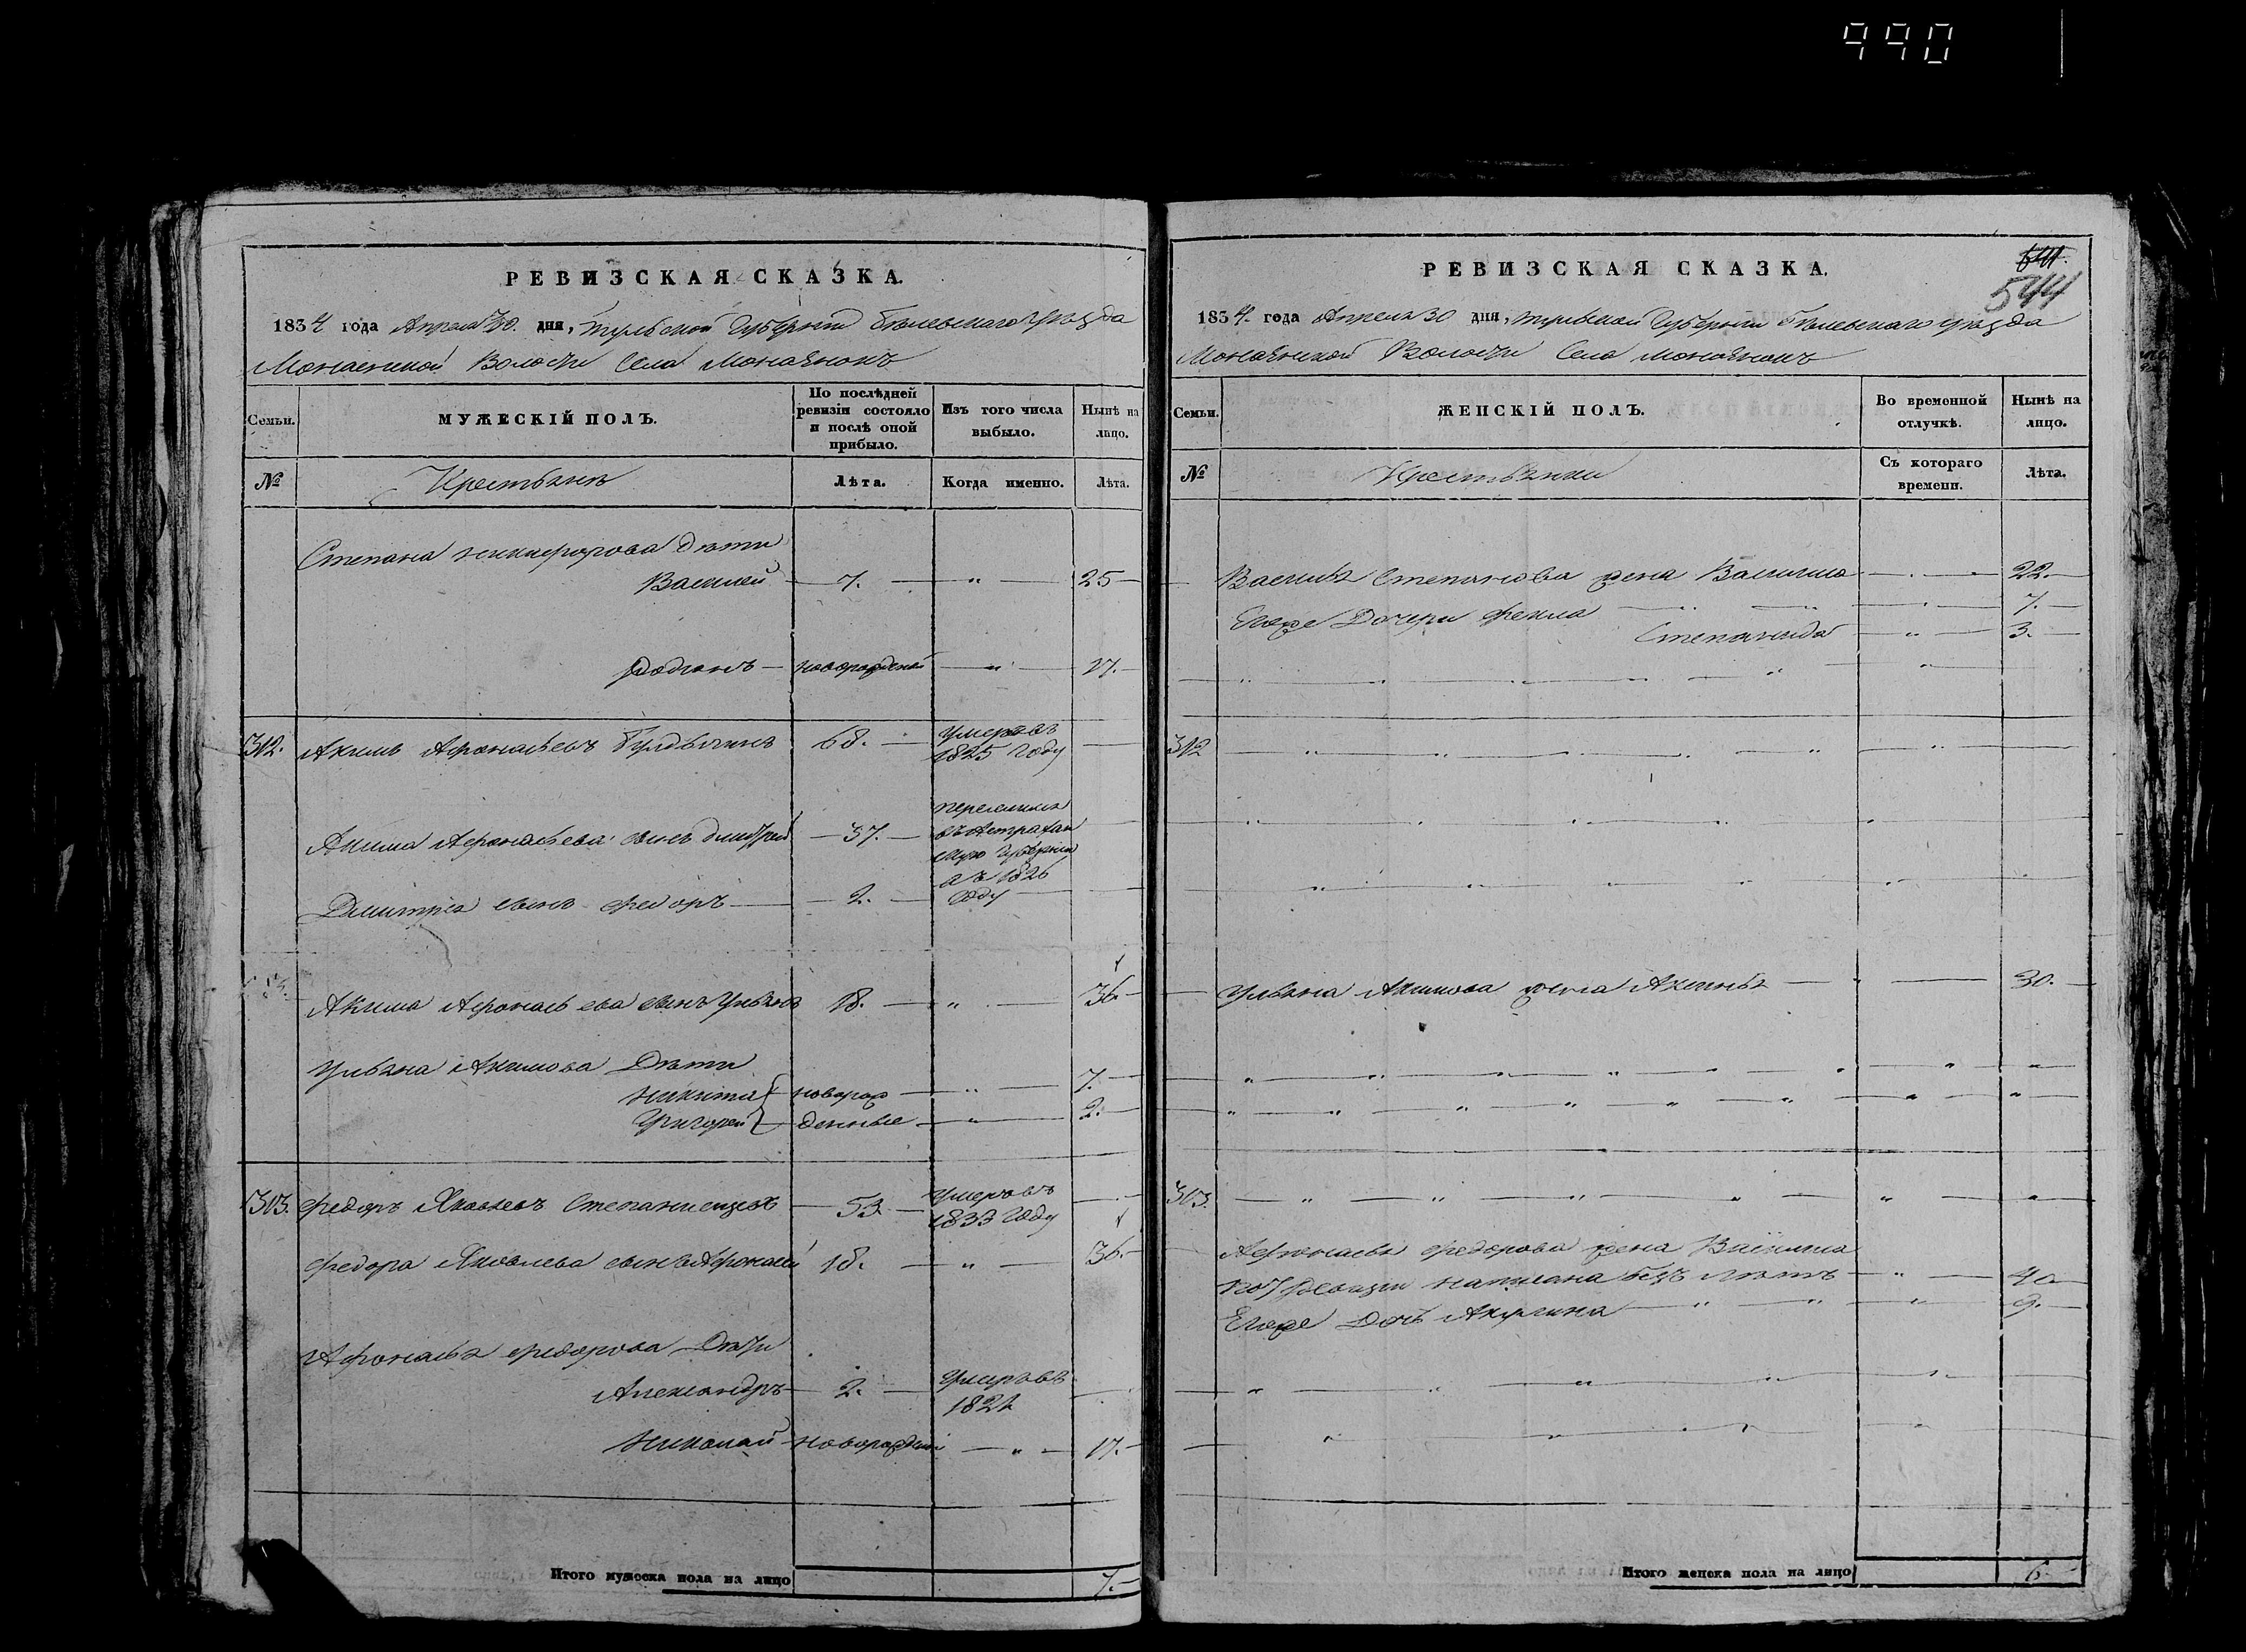 990
РЕВИЗСКАЯ СКАЗКА.
1834 года Апреля 30 дня, Тульской Губернии Белевскаго уезда
Монаенской Волости Села Монаенокъ
Семьи.
МУЖЕСКІЙ ПОЛЪ.
По послѣдней ревизіи состояло и послѣ оной прибыло.
Изъ того числа выбыло.
Нынѣ на лицо.
№
Крестьянъ
Лѣта.
Когда именно.
Лѣта.
Степана Никифорова дети
Василей — 7. — " — 25
Родионъ — новорожденой — " — 17.
312. Акимъ Афонасьевъ 68. — умеръ въ 1825 году
Акима Афонасьева сынъ Дмитрей — 37. — переселился въ Астраханскую Губернию въ 1826 году
Дмитрея сынъ Федоръ — 2. —
Акима Афонасьева сынъ Ульянъ 18. — " — 36.
Ульяна Акимова Дети
Никита новорож — " — 7.
Григорей денные — " — 2.
313. Федоръ Яковлевъ — 53 — умеръ въ 1833 году
Федора Яковлева сынъ Афонасей 18. — " — 36.
Афонасья Федорова Дети
Александръ — 2. — умеръ въ 1821
Николай новорожденой — " — 17.
Итого мужеска пола на лицо 7.
РЕВИЗСКАЯ СКАЗКА.
544
1834 года Апреля 30 дня, Тульской Губернии Белевскаго уезда
Монаенской Волости Села Монаенокъ
Семьи.
ЖЕНСКІЙ ПОЛЪ.
Во временной отлучкѣ.
Нынѣ на лицо.
№
Крестьянки
Съ котораго времени.
Лѣта.
Василья Степанова жена Василиса 22.
Егоже Дочери Фекла 7.
Степанида — " — 3.
312
Ульяна Акимова жена Аксинья — " — 30.
313.
Афонасья Федорова жена Василиса
по 7 ревизии написана безъ летъ — " — 40
Егоже Дочь Акулина — " — 9.
Итого женска пола на лицо 6